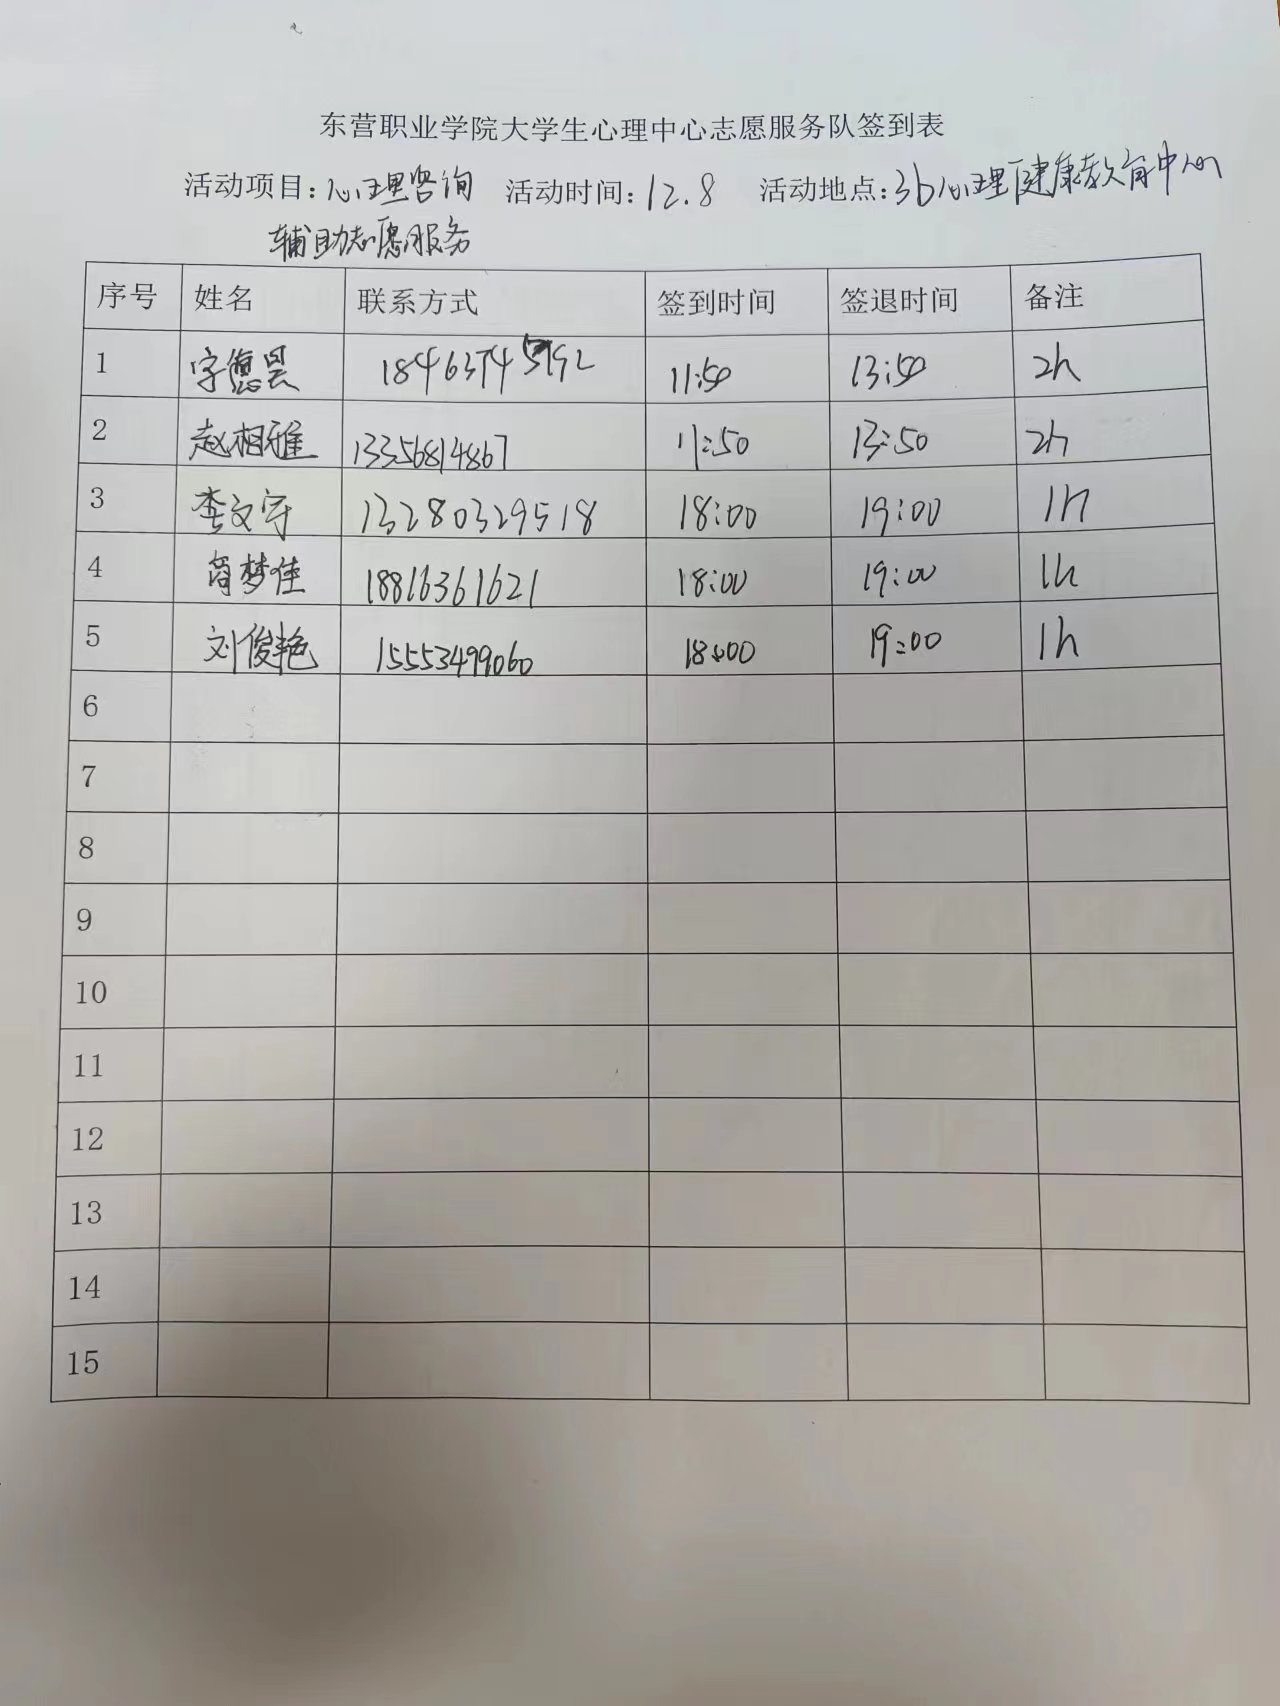 东营职业学院大学生心理中心志愿服务队签到表
活动项目：心理咨询 活动时间：12.8 活动地点：3b心理健康教育中心
辅助志愿服务
序号 姓名 联系方式 签到时间 签退时间 备注
1 11:50 13:50 2h
2 赵相雅 13356814867 11:50 13:50 2h
3 李文宇 13280329518 18:00 19:00 1h
4 肖梦佳 18816361621 18:00 19:00 1h
5 刘俊艳 15553499060 18:00 19:00 1h
6
7
8
9
10
11
12
13
14
15